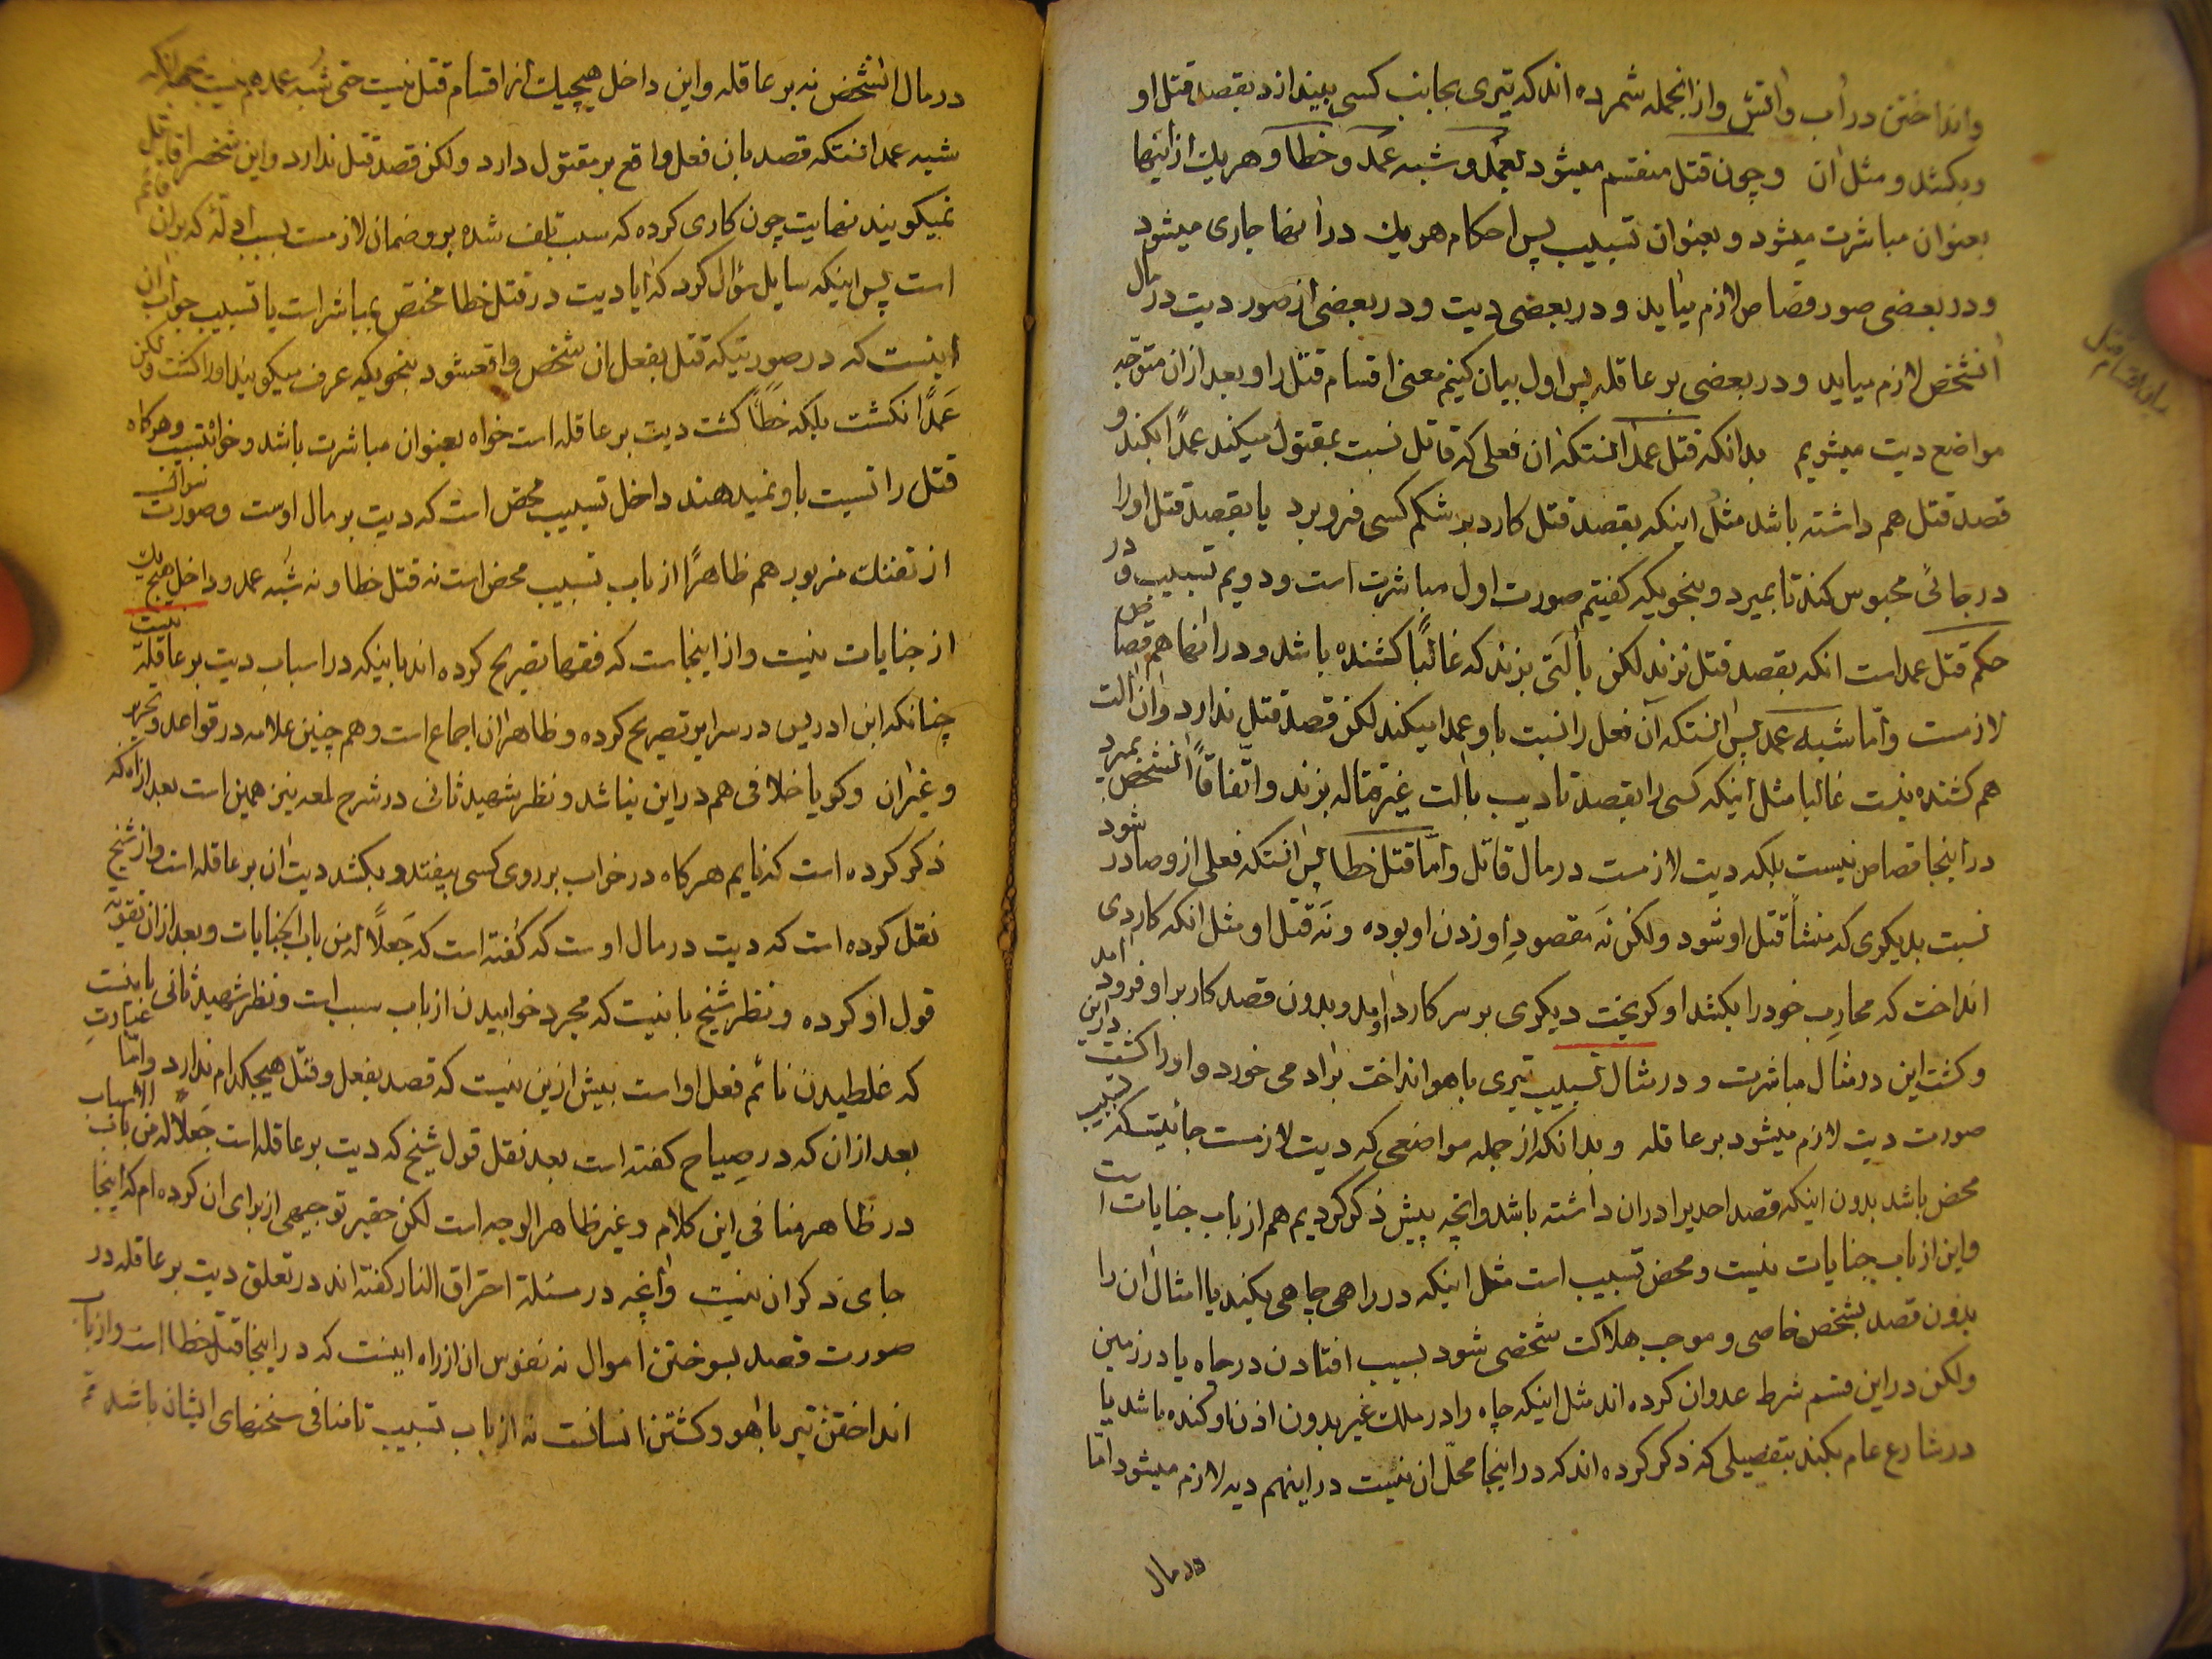 وانداختن در آب و آتش و از انجمله شمرده اند که تیری بجانب کسی بیندازد بقصد قتل او
و بکشد و مثل آن و چون قتل منقسم میشود بعمد و شبه عمد و خطا و هر یک از اینها
بعنوان مباشرت میشود و بعنوان تسبیب پس احکام هر یک در آنها جاری میشود
و در بعضی صور قصاص لازم میاید و در بعضی دیت و در بعضی از صور دیت در مال
آنشخص لازم میاید و در بعضی بر عاقله پس اول بیان کنیم معنی اقسام قتل را و بعد از ان متوجه
بیان اقسام قتل
مواضع دیت میشویم بدانکه قتل عمد آنستکه ان فعلی که قاتل نسبت بمقتول میکند عمداً بکند و
قصد قتل هم داشته باشد مثل اینکه بقصد قتل کارد بر شکم کسی فرو برد یا بقصد قتل او را
در جائی محبوس کند تا بمیرد و بنحویکه گفتیم صورت اول مباشرت است و دویم تسبیب و در
حکم قتل عمد است انکه بقصد قتل نزند لکن بآلتی بزند که غالباً کشنده باشد و در انها هم قصاص
لازمست و اما شبه عمد پس آنستکه آن فعل را نسبت باو عمدا میکند لکن قصد قتل ندارد و ان الت
هم کشنده نیست غالبا مثل اینکه کسی را بقصد تادیب بالت غیر قتاله بزند و اتفاقاً آنشخص بمیرد
در اینجا قصاص نیست بلکه دیت لازمست در مال قاتل و اما قتل خطا پس آنستکه فعلی از و صادر شود
نسبت بدیگری که منشأ قتل او شود ولکن نَه مقصودِ او زدن او بوده و نَه قتل او مثل انکه کاردی
انداخت که محاربِ خود را بکشد او گریخت دیگری بر سر کارد آمد و بدون قصد کار بر او فرود امد
و کشت این در مثال مباشرت و در مثال تسبیب تیری باهو انداخت بزاد می خورد و او را کشت در این
صورت دیت لازم میشود بر عاقله و بدانکه از جمله مواضعی که دیت لازمست جائیست که تسبیب
محض باشد بدون اینکه قصد احدیرا در ان داشته باشد و انچه پیش ذکر کردیم هم از باب جنایات است
و این از باب جنایات نیست و محض تسبیب است مثل اینکه در راهی چاهی بکند یا امثال آن را
بدون قصد بشخص خاصی و موجب هلاکت شخصی شود بسبب افتادن در چاه یا در زمین
ولکن در این قسم شرط عدوان کرده اند مثل اینکه چاه را در ملک غیر بدون اذن او کنده باشد یا
در شارع عام بکند بتفصیلی که ذکر کرده اند که در اینجا محل ان نیست در اینهم دیه لازم میشود اما
در مال
در مال آنشخص نه بر عاقله و این داخل هیچیک از اقسام قتل نیست حتی شبه عمد هم نیست بجهة انکه
شبه عمد آنستکه قصد بان فعل واقع بر مقتول دارد ولکن قصد قتل ندارد و این شخص را قاتل
نمیگویند نهایت چون کاری کرده که سبب تلف شده برو ضمان لازمست بسبب ادلّه که بر ان قائم
است پس اینکه سایل سؤال کرد که آیا دیت در قتل خطا مختص بمباشر است یا تسبیب جواب آن
اینست که در صورتیکه قتل بفعل ان شخص واقعشود بنحویکه عرف میگویند او را کشت ولکن
عَمداً نکشت بلکه خَطاً کشت دیت بر عاقله است خواه بعنوان مباشرت باشد و خواه تسبیب و هرگاه
قتل را نسبت باو نمیدهند داخل تسبیب محض است که دیت بر مال اوست و صورت
از تفنک مزبور هم ظاهراً از باب تسبیب محض است نه قتل خطا و نه شبه عمد و داخل هیچ یک
از جنایات نیست و از اینجاست که فقها تصریح کرده اند باینکه در اسباب دیت بر عاقله نیست
چنانکه ابن ادریس در سرایر تصریح کرده و ظاهر ان اجماع است و هم چنین علامه در قواعد و تحریر
و غیر ان و گویا خلافی هم در این نباشد و نظر شهید ثانی در شرح لمعه نیز همین است بعد از ان که
ذکر کرده است که نایم هرگاه در خواب بر روی کسی بیفتد و بکشد دیت ان بر عاقله است و از شیخ
نقل کرده است که دیت در مال اوست که گفته است که جَعلاً له من باب الجنایات و بعد از ان تقویة
قول او کرده و نظر شیخ باینست که مجرد خوابیدن از باب سبب است و نظر شهید ثانی باینست
که غلطیدن نائم فعل او است بیش ازین نیست که قصد بفعل و قتل هیچکدام ندارد و اما عبارت
بعد از ان که در صیاح گفته است بعد نقل قول شیخ که دیت بر عاقله است جَعلاً له من باب الاسباب
در ظاهر منافی این کلام و غیر ظاهر الوجه است لکن حقیر توجیهی از برای ان کرده ام که اینجا
جای ذکر ان نیست و آنچه در مسئله احتراق النار گفته اند در تعلق دیت بر عاقله در
صورت قصد بسوختن اموال نه نفوس ان از راه اینست که در اینجا قتل خطا است و از باب
انداختن تیر باهو و کشتن انسانست نه از باب تسبیب تا منافی سخنهای ایشان باشد